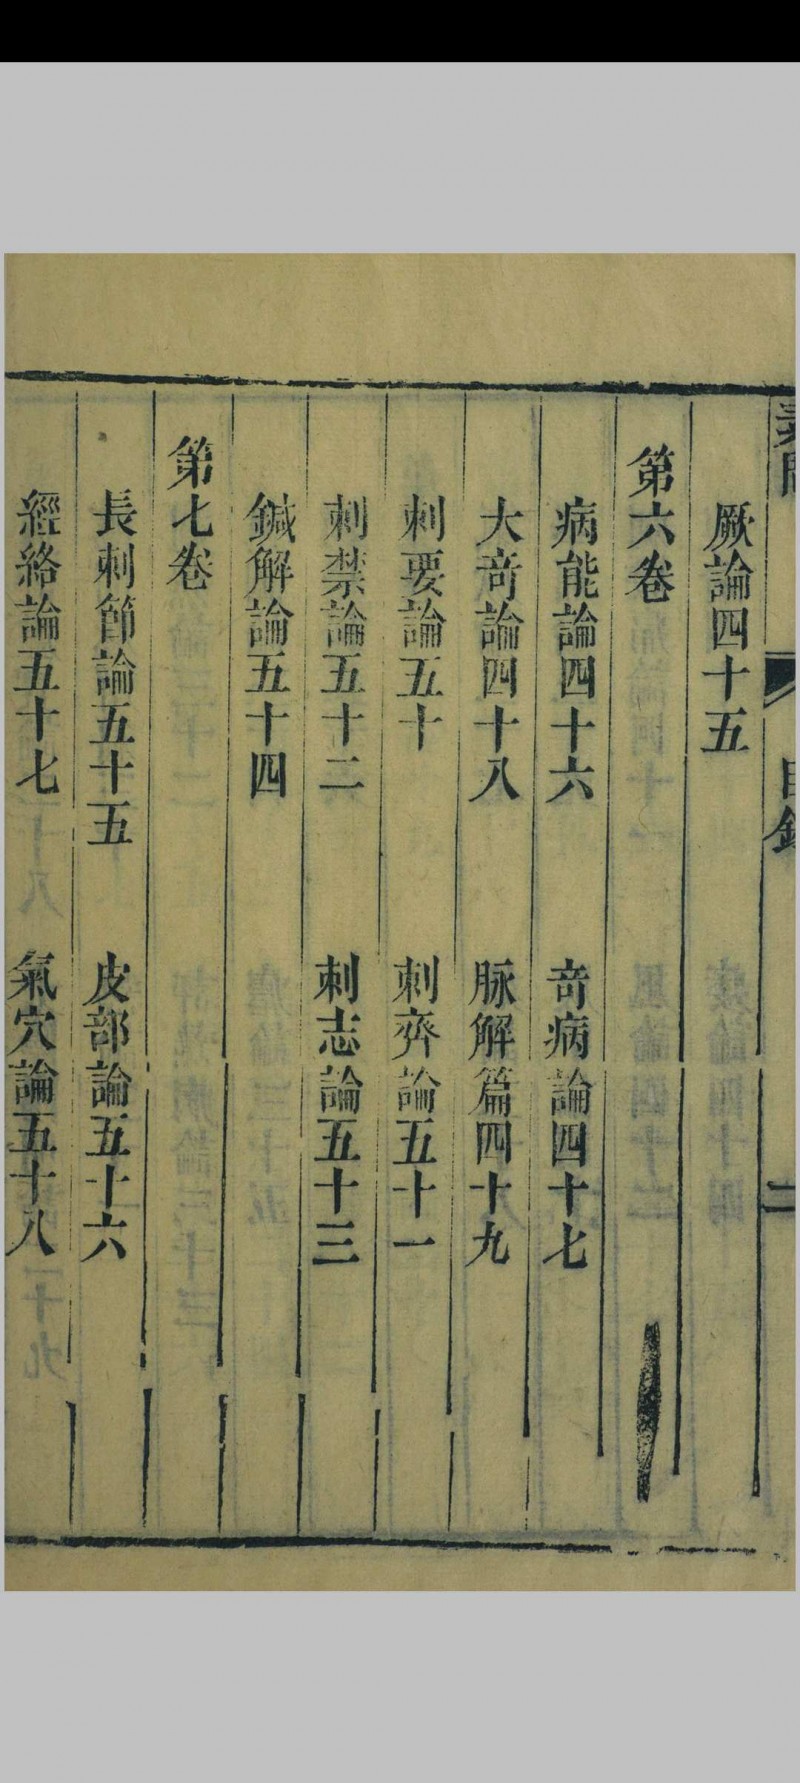 厥論四十五
第六卷
病能論四十六 竒病論四十七
大竒論四十八 脉解篇四十九
刺要論五十 刺齊論五十一
刺禁論五十二 刺志論五十三
鍼解論五十四
第七卷
長刺節論五十五 皮部論五十六
經絡論五十七 氣穴論五十八